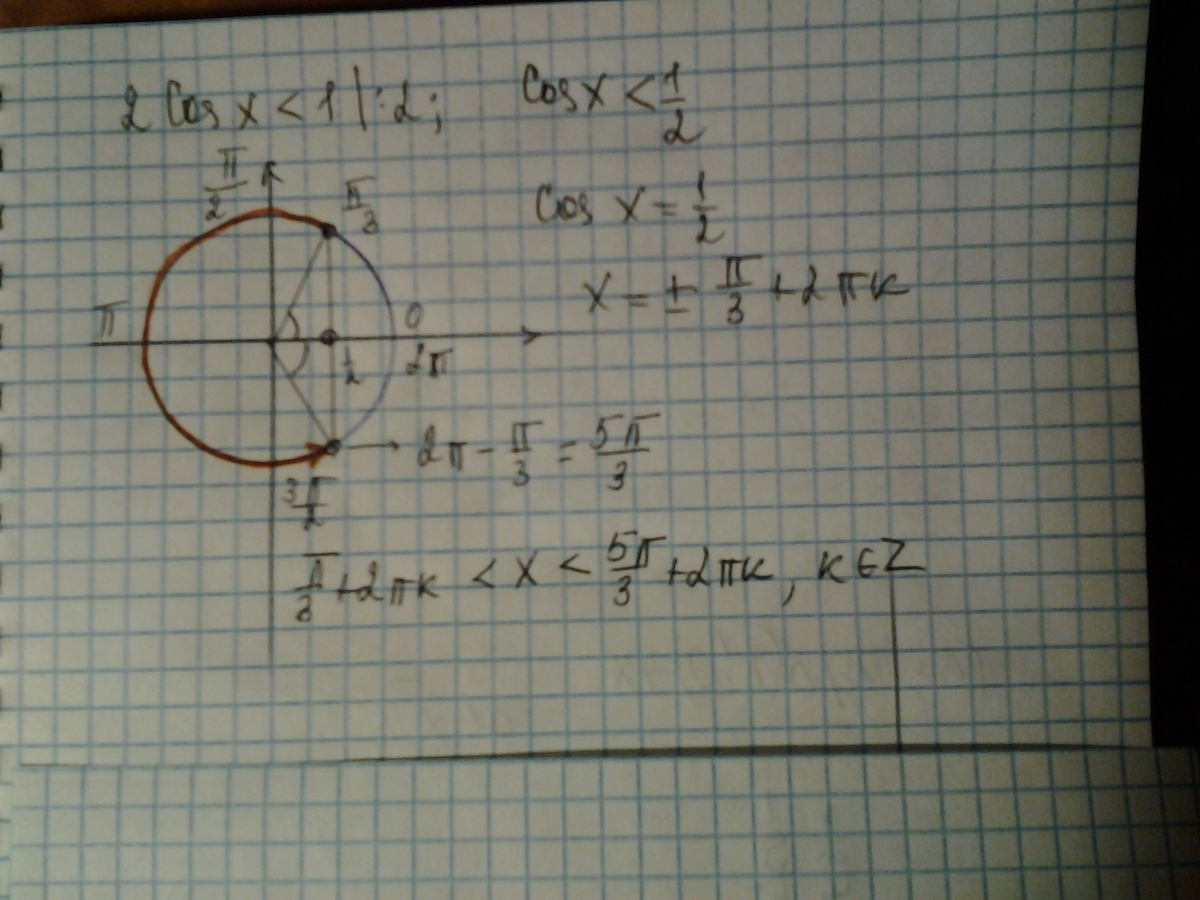 2 Cos x < 1 | :2; Cos x < 1/2
π/2
π/3
Cos x = 1/2
x = ± π/3 + 2πк
π
0
1/2
2π
2π - π/3 = 5π/3
3π/2
π/3 + 2πк < x < 5π/3 + 2πк, к ∈ Z